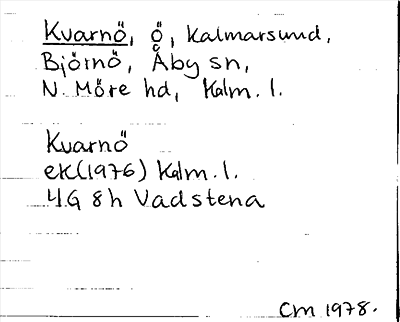 Kvarnö, ö, Kalmarsund,
Björnö, Åby sn,
N. Möre hd, Kalm. l.
Kvarnö
ek(1976) Kalm. l.
4G 8h Vadstena
CM 1978.